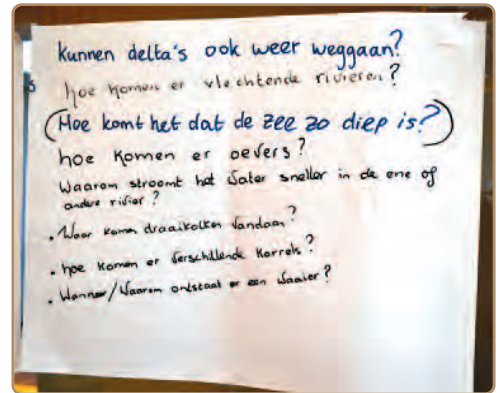 Kunnen delta's ook weer weggaan?
s
hoe komen er vlechtende rivieren?
(Hoe komt het dat de zee zo diep is?)
hoe komen er oevers?
Waarom stroomt het water sneller in de ene of
andere rivier?
. Waar komen draaikolken vandaan?
. hoe komen er verschillende korrels?
. Wanneer/Waarom ontstaat er een waaier?